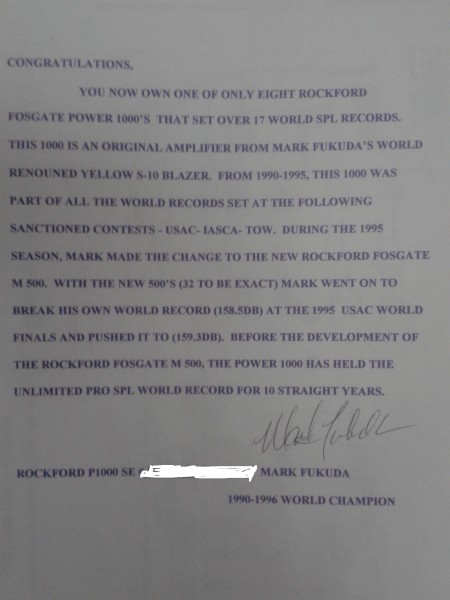 CONGRATULATIONS,
YOU NOW OWN ONE OF ONLY EIGHT ROCKFORD
FOSGATE POWER 1000'S THAT SET OVER 17 WORLD SPL RECORDS.
THIS 1000 IS AN ORIGINAL AMPLIFIER FROM MARK FUKUDA'S WORLD
RENOUNED YELLOW S-10 BLAZER. FROM 1990-1995, THIS 1000 WAS
PART OF ALL THE WORLD RECORDS SET AT THE FOLLOWING
SANCTIONED CONTESTS - USAC- IASCA- TOW. DURING THE 1995
SEASON, MARK MADE THE CHANGE TO THE NEW ROCKFORD FOSGATE
M 500. WITH THE NEW 500'S (32 TO BE EXACT) MARK WENT ON TO
BREAK HIS OWN WORLD RECORD (158.5DB) AT THE 1995 USAC WORLD
FINALS AND PUSHED IT TO (159.3DB). BEFORE THE DEVELOPMENT OF
THE ROCKFORD FOSGATE M 500, THE POWER 1000 HAS HELD THE
UNLIMITED PRO SPL WORLD RECORD FOR 10 STRAIGHT YEARS.
Mark Fukuda
ROCKFORD P1000 SE MARK FUKUDA
1990-1996 WORLD CHAMPION